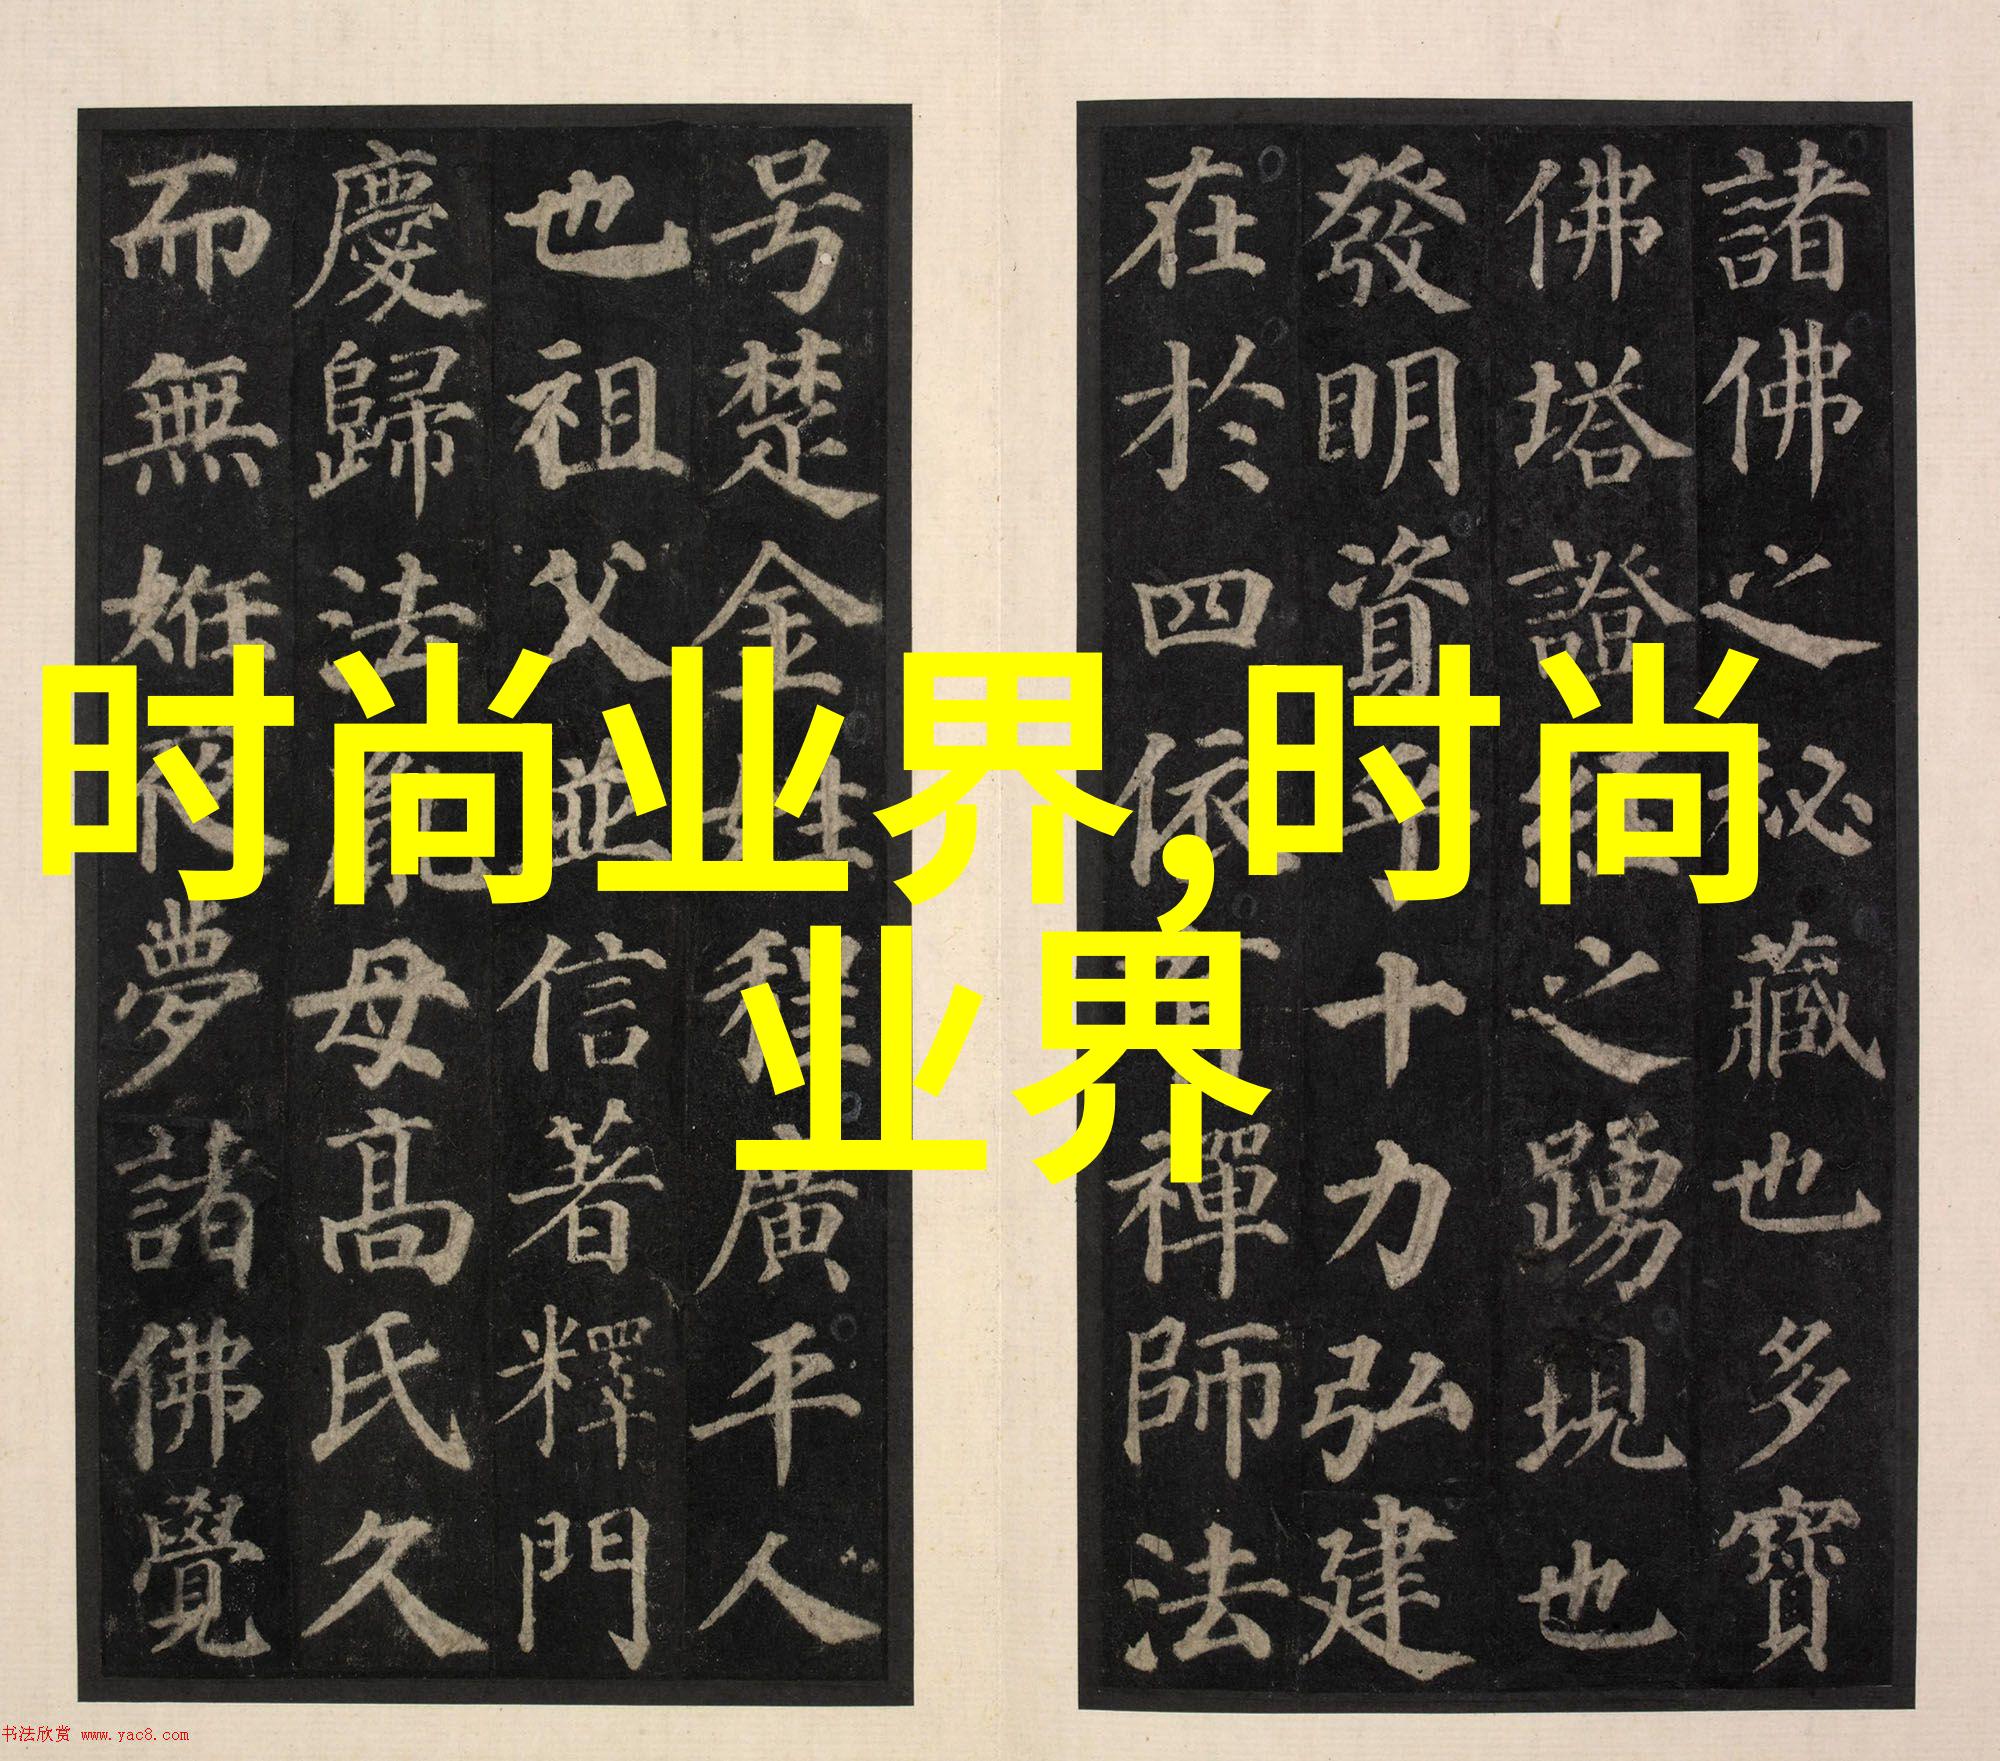 諸佛之秘藏也多寶
佛塔證經之踴現也
發明資乎十力弘建
在於四依有禪師法
号楚金姓程廣平人
也祖父並信著釋門
慶歸法胤母髙氏久
而無姙夜夢諸佛覺
时尚业界,时尚
业界
书法欣赏 www.yac8.com